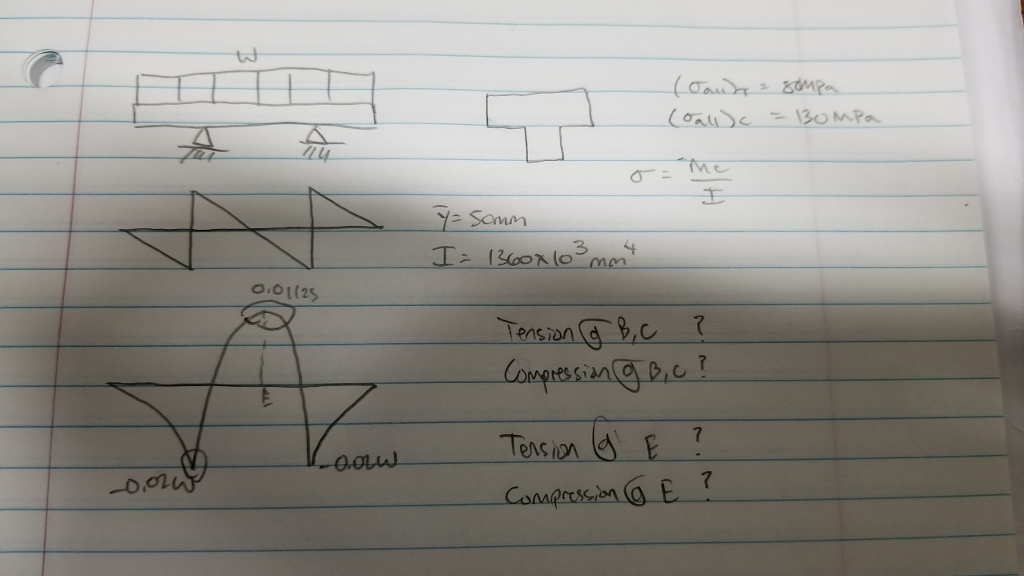 W
(σall)T = 80MPa
(σall)C = 130MPa
σ = -Mc/I
ȳ = 50mm
I = 1360x10³mm⁴
0.01125
E
-0.02W
-0.02W
Tension @ B,C ?
Compression @ B,C ?
Tension @ E ?
Compression @ E ?